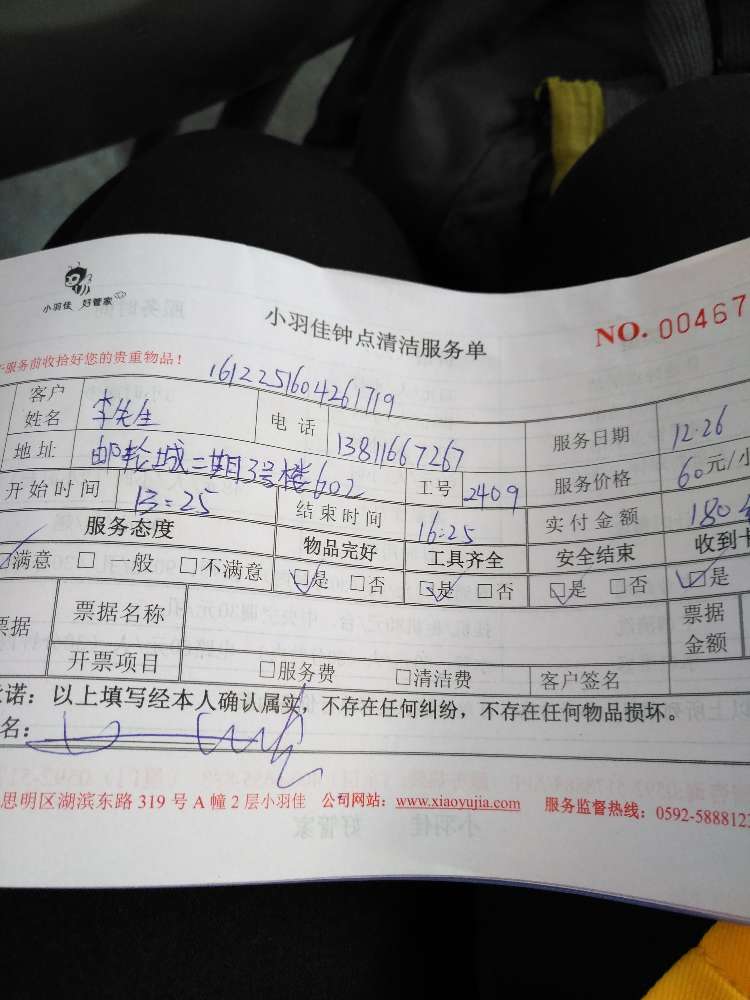 小羽佳 好管家
小羽佳钟点清洁服务单
NO. 00467
服务前收拾好您的贵重物品！
1612251604261719
客户姓名 李先生 电话 13811667267 服务日期 12.26
地址 邮轮城二期3号楼602 工号 2409 服务价格 60元/小
开始时间 13:25 结束时间 16:25 实付金额 180
服务态度 物品完好 工具齐全 安全结束 收到卡
☑满意 □一般 □不满意 ☑是 □否 ☑是 □否 ☑是 □否 ☑是
票据 票据名称 票据金额
开票项目 □服务费 □清洁费 客户签名
诺：以上填写经本人确认属实，不存在任何纠纷，不存在任何物品损坏。
名：
思明区湖滨东路 319 号 A 幢 2 层小羽佳 公司网站：www.xiaoyujia.com 服务监督热线：0592-5888123